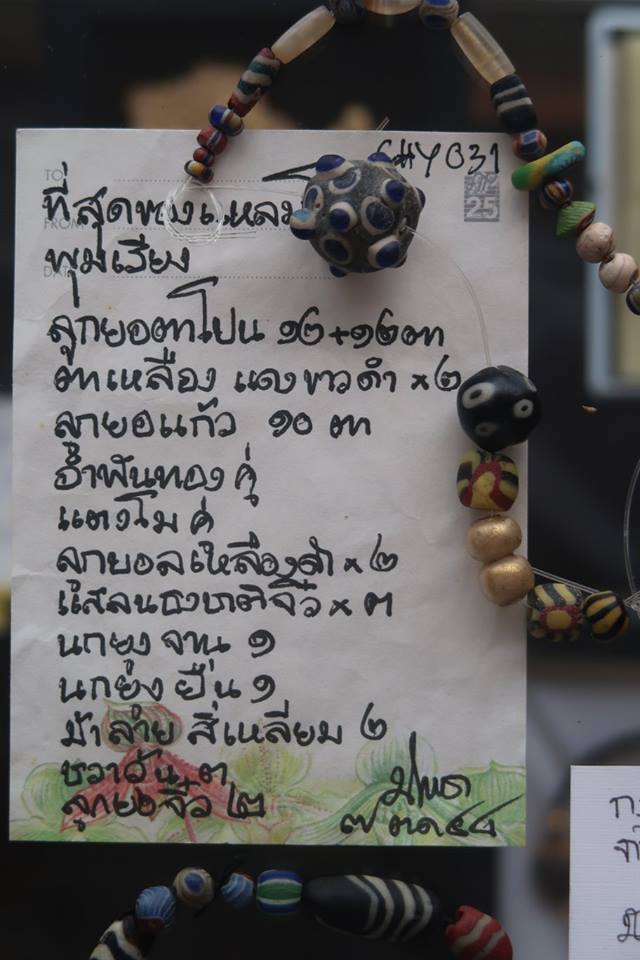 CHY031
TO
25
ที่สุดของแหลม
FROM
พุมเรียง
DATE
ลูกยอตาโปน ๑๒+๑๒ตา
ตาเหลือง แดงขาวดำ ×๒
ลูกยอแก้ว ๑๐ ตา
อำพันทอง คู่
แตงโม คู่
ลูกยอลเหลืองดำ × ๒
แสลนธงชาติจิ๋ว × ๓
นกยูง จาน ๑
นกยูง ยืน ๑
ม้าลาย สี่เหลี่ยม ๒
ชวาวัน ๓
ลูกยอ จิ๋ว ๒
๗ ตค ๕๔